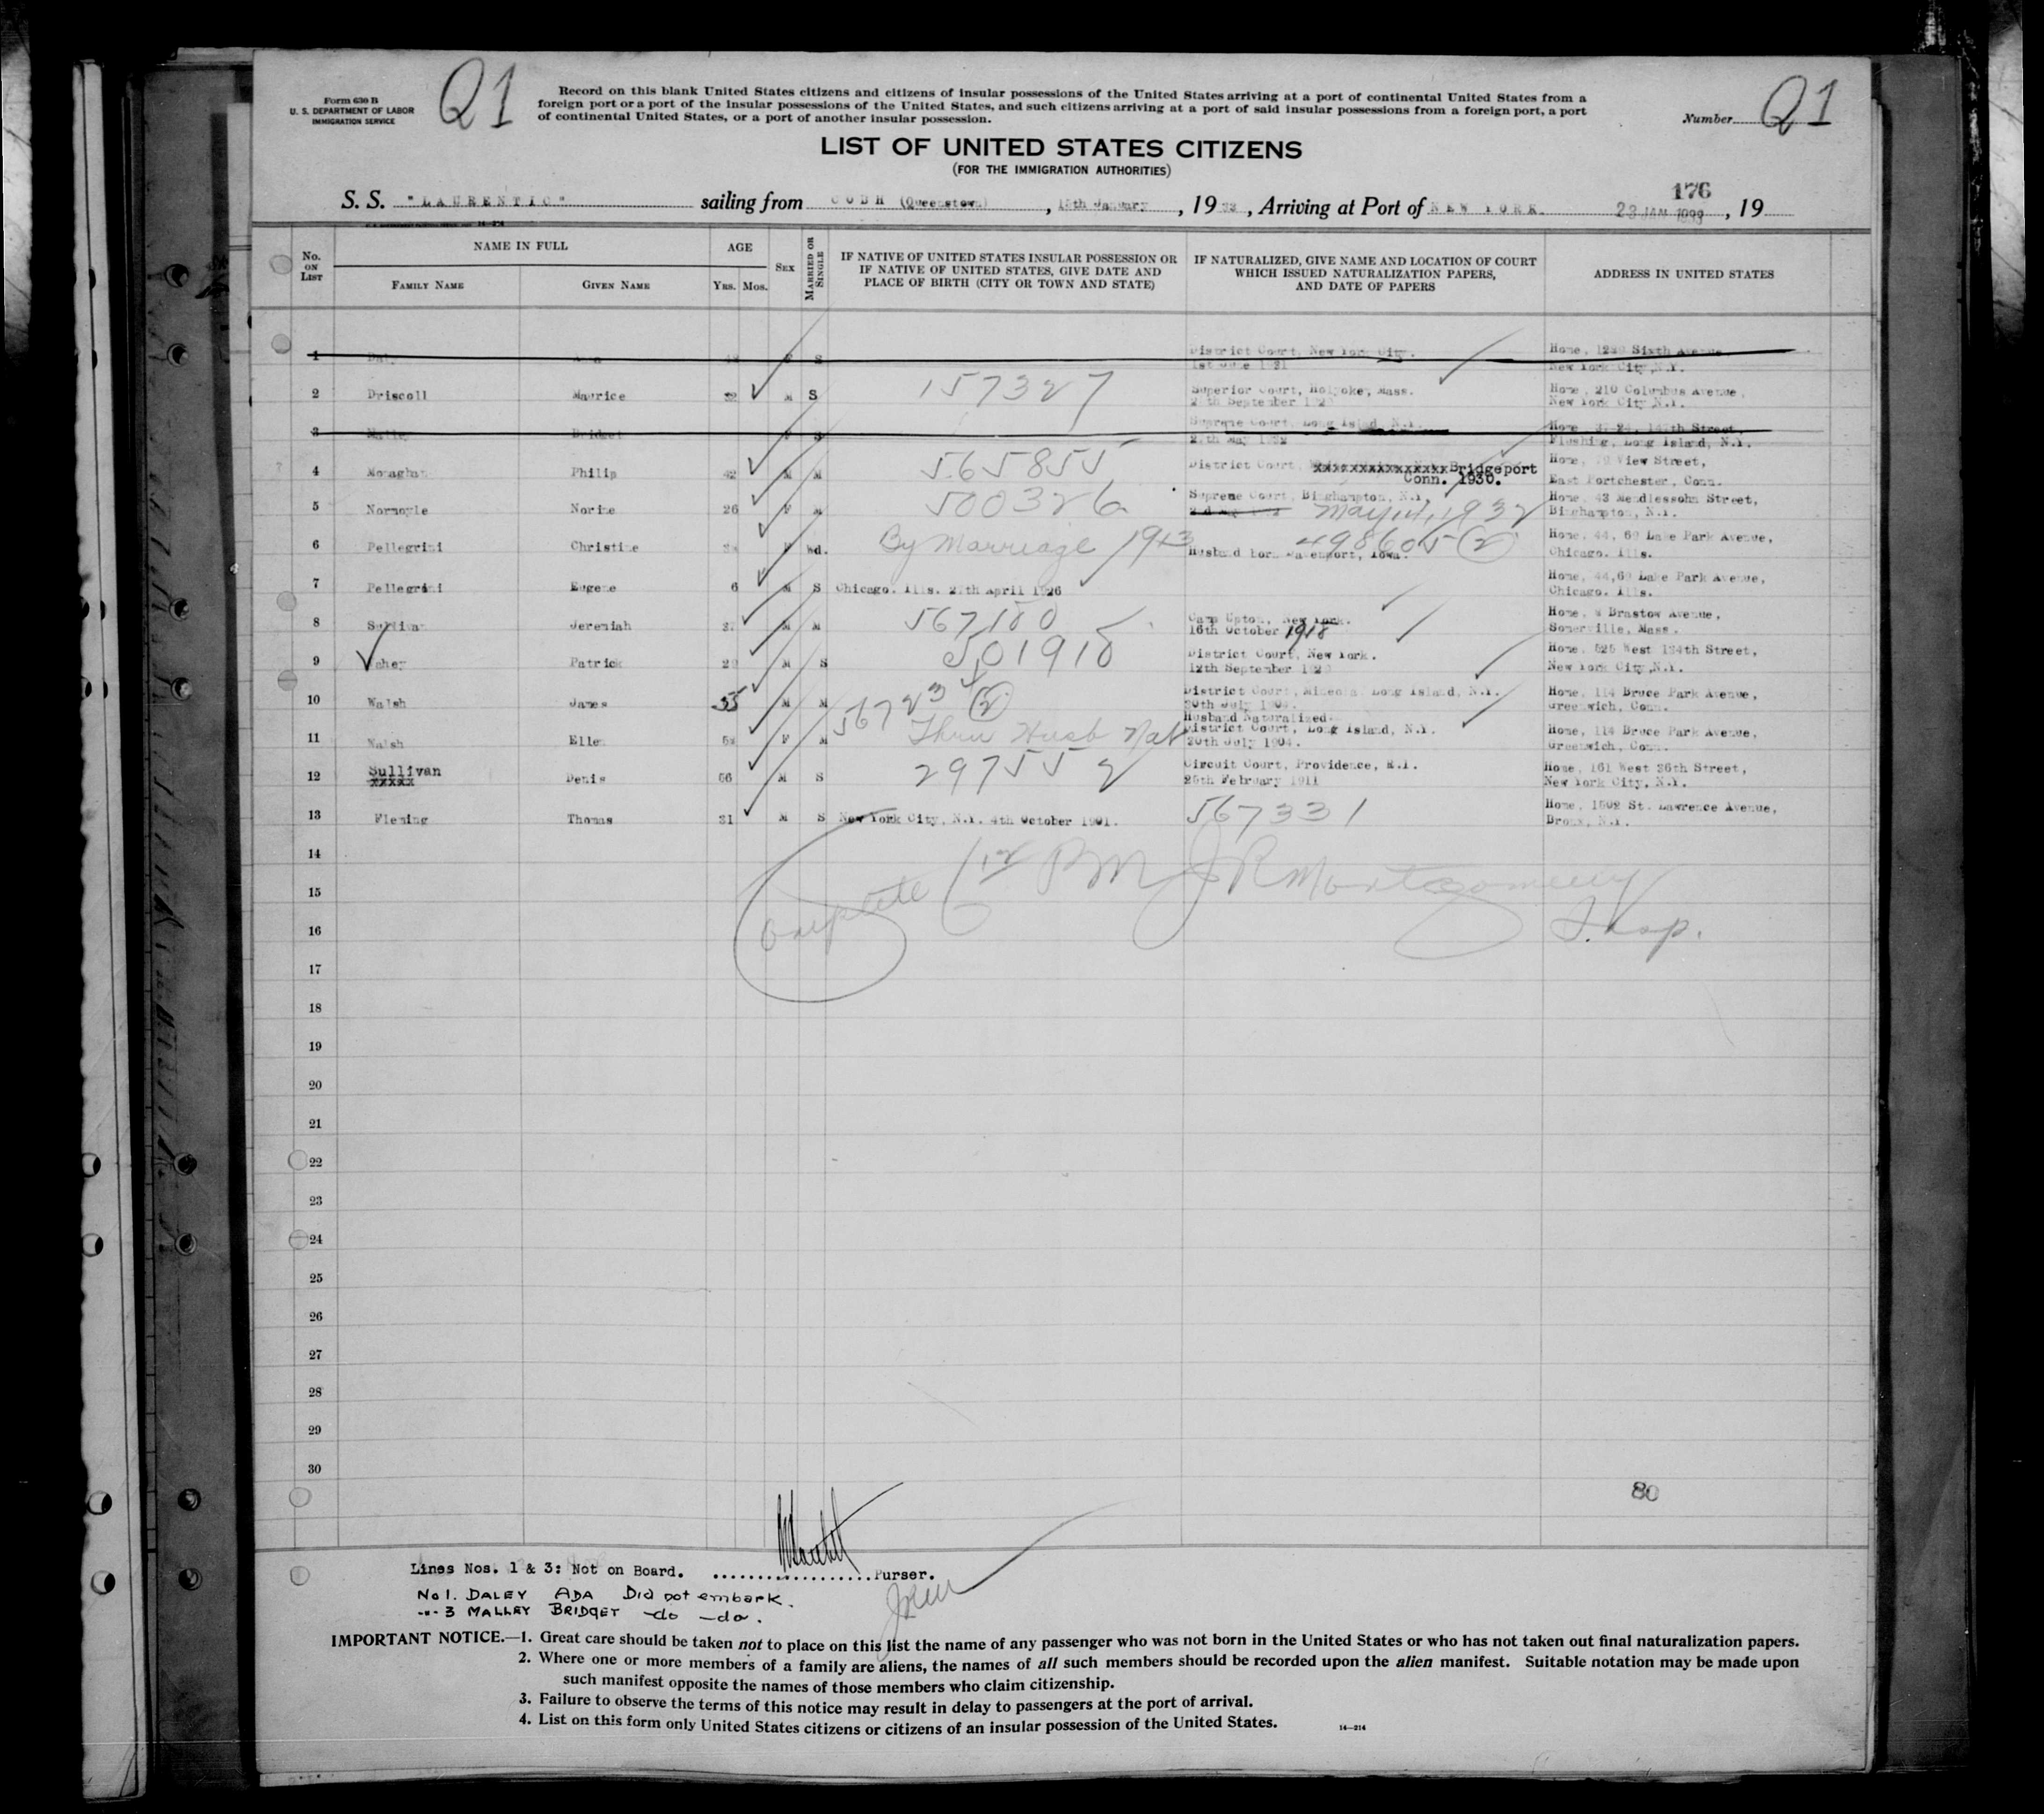 Form 630 B
U. S. DEPARTMENT OF LABOR
IMMIGRATION SERVICE
Q1
Record on this blank United States citizens and citizens of insular possessions of the United States arriving at a port of continental United States from a
foreign port or a port of the insular possessions of the United States, and such citizens arriving at a port of said insular possessions from a foreign port, a port
of continental United States, or a port of another insular possession.
Number Q1
LIST OF UNITED STATES CITIZENS
(FOR THE IMMIGRATION AUTHORITIES)
176
S. S. "LAURENTIC" sailing from COBH (Queenstown), 15th January, 1933, Arriving at Port of NEW YORK. 23 JAN, 19
No. ON LIST
NAME IN FULL
FAMILY NAME GIVEN NAME
AGE
YRS. MOS.
SEX
MARRIED OR SINGLE
IF NATIVE OF UNITED STATES INSULAR POSSESSION OR
IF NATIVE OF UNITED STATES, GIVE DATE AND
PLACE OF BIRTH (CITY OR TOWN AND STATE)
IF NATURALIZED, GIVE NAME AND LOCATION OF COURT
WHICH ISSUED NATURALIZATION PAPERS,
AND DATE OF PAPERS
ADDRESS IN UNITED STATES
1 F S District Court, New York City. Home, Sixth Avenue
1st June 1931 New York City, N.Y.
2 Driscoll Maurice M S 157327 Superior Court, Holyoke, Mass. Home, 210 Columbus Avenue,
September New York City N.Y.
3 Malley Bridget F S Supreme Court, Long Island, N.Y. Home, 147th Street,
27th May 1932 Flushing, Long Island, N.Y.
4 Monaghan Philip 42 M M 565855 District Court, xxxxxxxxxxxxxxxxx Bridgeport Home, View Street,
Conn. 1930. East Portchester, Conn.
5 Normoyle Norine 26 F M 500326 Supreme Court, Binghampton, N.Y. Home, 43 Mendlessohn Street,
May 14, 1932 Binghampton, N.Y.
6 Pellegrini Christine F Wd. By Marriage 1923 498605 (2) Home, 44, 60 Lake Park Avenue,
Husband born Davenport, Iowa. Chicago. Ills.
7 Pellegrini Eugene 6 M S Chicago. Ills. 27th April 1926 Home, 44,60 Lake Park Avenue,
Chicago. Ills.
8 Sullivan Jeremiah M M 567180 Camp Upton, New York. Home, Brastow Avenue,
16th October 1918 Somerville, Mass.
9 Vahey Patrick M S 501918 District Court, New York. Home, 525 West 134th Street,
12th September New York City, N.Y.
10 Walsh James 55 M M 56723 (2) District Court, Mineola Long Island, N.Y. Home, 114 Bruce Park Avenue,
July Greenwich, Conn.
11 Walsh Ellen F M Thru Husb Nat Husband Naturalized
District Court, Long Island, N.Y. Home, 114 Bruce Park Avenue,
20th July 1904. Greenwich, Conn.
12 Sullivan Denis 56 M S 297552 Circuit Court, Providence, R.I. Home, 161 West 36th Street,
xxxxx 25th February 1911 New York City, N.Y.
13 Fleming Thomas 31 M S New York City, N.Y. 4th October 1901. 567331 Home, 1502 St. Lawrence Avenue,
Bronx, N.Y.
14
Complete 12 J R Montgomery
15
16 Insp.
17
18
19
20
21
22
23
24
25
26
27
28
29
30
80
Lines Nos. 1 & 3: Not on Board. ...................Purser.
No 1. DALEY ADA Did not embark.
-"- 3 MALLEY BRIDGET -do -do.
IMPORTANT NOTICE.—1. Great care should be taken not to place on this list the name of any passenger who was not born in the United States or who has not taken out final naturalization papers.
2. Where one or more members of a family are aliens, the names of all such members should be recorded upon the alien manifest. Suitable notation may be made upon
such manifest opposite the names of those members who claim citizenship.
3. Failure to observe the terms of this notice may result in delay to passengers at the port of arrival.
4. List on this form only United States citizens or citizens of an insular possession of the United States.
14—214